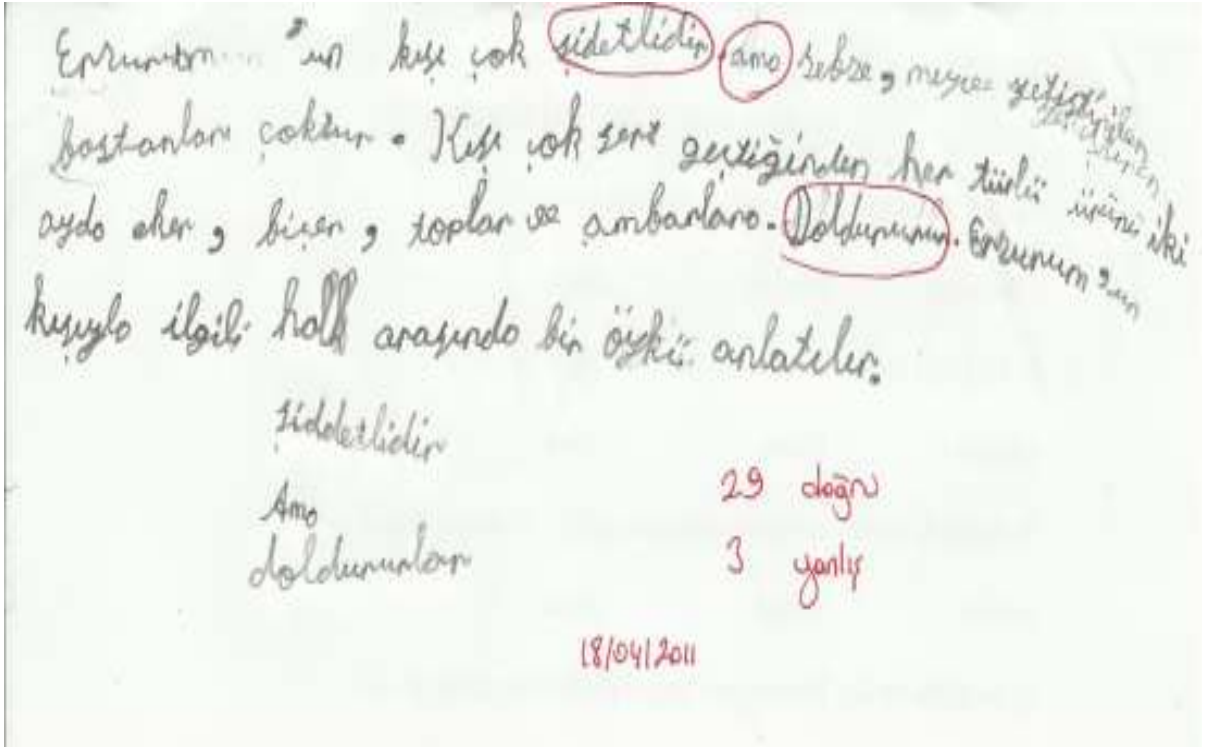 Erzurum'un kışı çok şidetlidir. amo sebze, meyve yetiştirilen
bostanları çoktur. Kışı çok sert geçtiğinden her türlü ürünü iki
aydo eker, biçer, toplar ve ambarlaro. Doldururur. Erzurum'un
kışıylo ilgili halk arasındo bir öykü anlatılır.
şiddetlidir
Amo
doldururlar
29 doğru
3 yanlış
18/04/2011